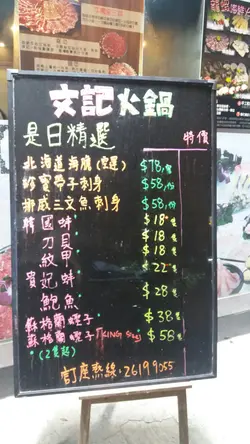 文記火鍋
是日精選 特價
北海道海膽(空運) $78,/盒
珍寶帶子刺身 $58,/份
挪威三文魚刺身 $58,/份
韓國蚌 $18 隻
刀貝 $18 隻
紋甲 $18 隻
貴妃蚌 $22 隻
鮑魚 $28 隻
蘇格蘭蟶子 $38 隻
蘇格蘭蟶子「KING Size」 $58 隻
(2隻起)
訂座熱線:26199055